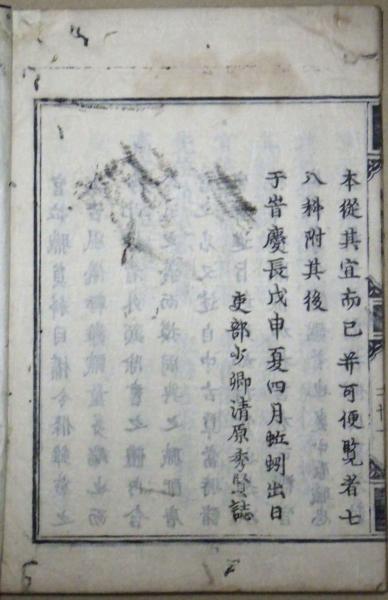 本從其宜而已并可便覧者七
八料附其後
于旹慶長戊申夏四月蚯蚓出日
吏部少卿清原秀賢誌